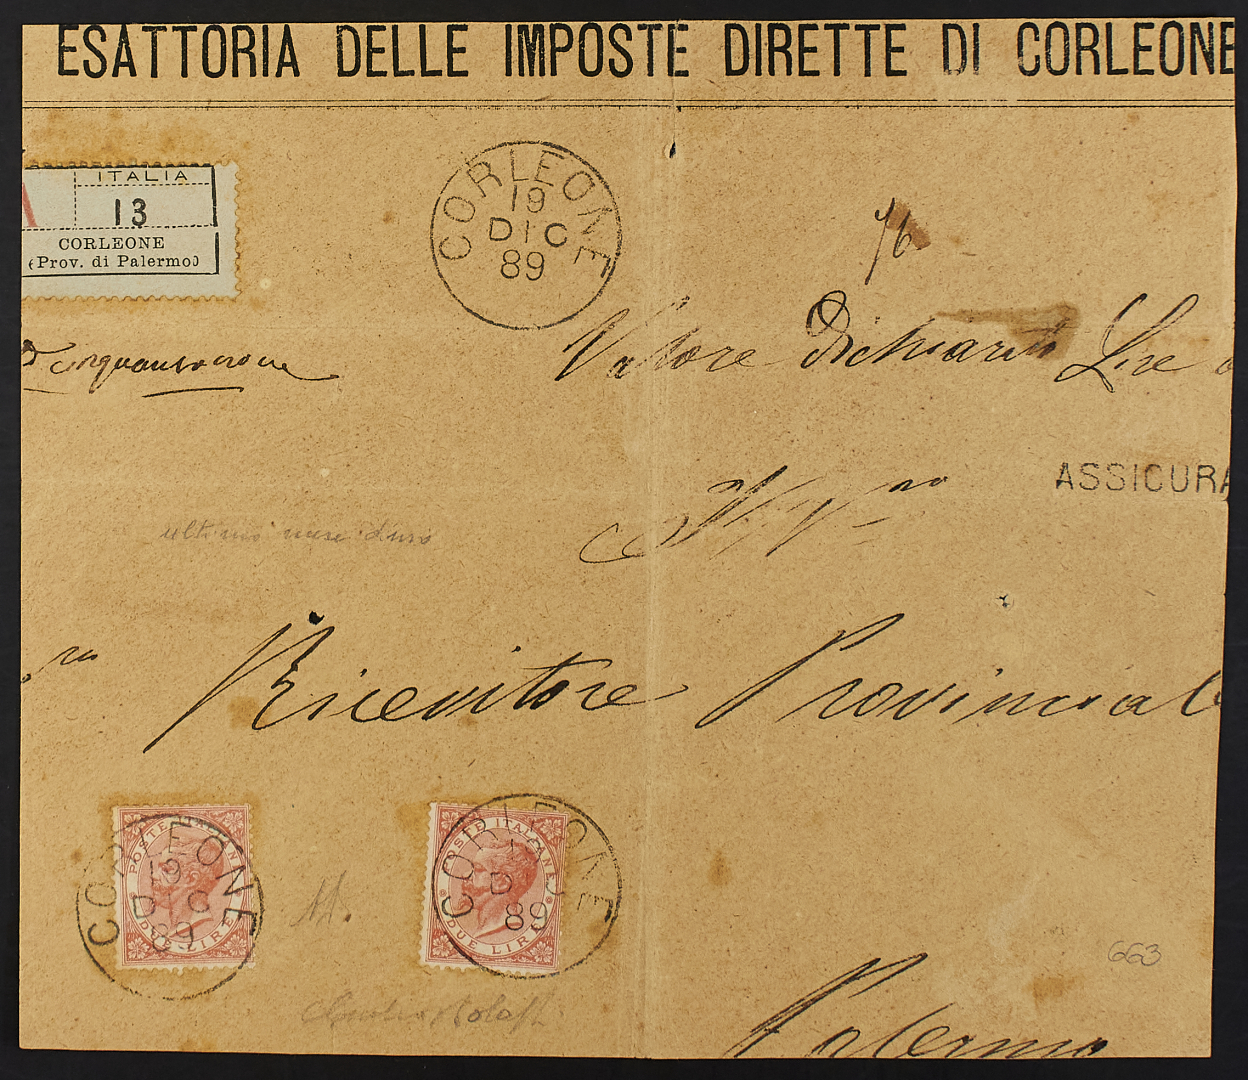 ESATTORIA DELLE IMPOSTE DIRETTE DI CORLEONE
ITALIA
13
CORLEONE
(Prov. di Palermo)
CORLEONE
19
DIC
89
76
Valore Dichiarato Lire
ASSICURA
ultimo mese d'uso
Ricevitore Provinciale
POSTE ITALIANE
DUE LIRE
CORLEONE
19
DIC
89
POSTE ITALIANE
DUE LIRE
CORLEONE
19
D
89
663
Palermo